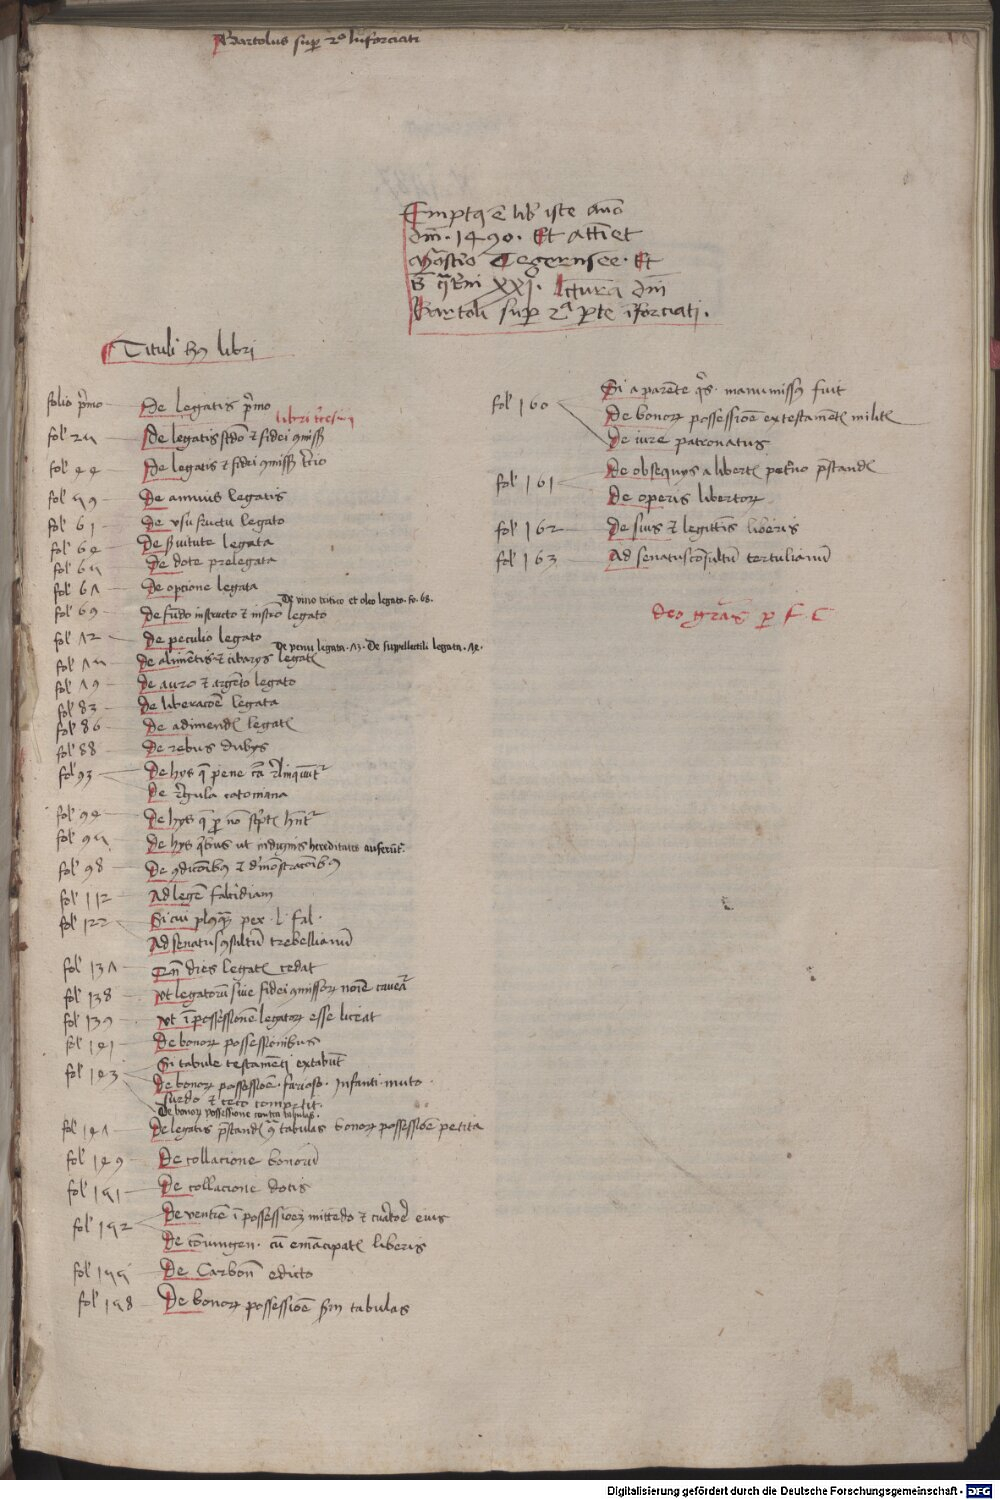 Bartolus sup 2º Inforciati
Emptq ē lib' iste año
dm̄ · 1490 · Et attīet
Mōastio Tegernsee · Et
XXI · lctura dm̄
Bartoli sup 2ª pte īforciati ·
Tituli hꝰ libri
folio p̄mo De legatis p̄mo
fol' 25 De legatis scd̄o ⁊ fidei ꝯmiss
fol' 44 De legatis ⁊ fidei ꝯmiss t̄cio
fol' 59 De annuis legatis
fol' 61 De vsufructu legato
fol' 64 De ẜuitute legata
fol' 65 De dote prelegata
fol' 67 De opcione legata
De vino tritico et oleo legato · fo · 68 ·
fol' 69 De fūdo instructo ⁊ instrō legato
fol' 72 De peculio legato
De penu legata · 73 · De suppellectili legata · 74 ·
fol' 75 De alimētis ⁊ cibarys legat
fol' 79 De auro ⁊ argēto legato
fol' 83 De liberacōe legata
fol' 86 De adimend legat
fol' 88 De rebus dubys
fol' 93 De hys q̄ pene cā relinquūt
De regula catoniana
fol' 94 De hys q̄ p nō sc̄pt hn̄t
fol' 95 De hys q̄bus ut indignis hereditates auferūt
fol' 98 De ꝯdicōibꝰ ⁊ d'mōstracōibꝰ
fol' 112 Ad legē falcidiam
fol' 122 Si cui plꝰq̄ pex · l · fal ·
Ad senatusꝯsultū trebellianū
fol' 137 Qn̄ dies legat cedat
fol' 138 Vt legatorū siue fidei ꝯmissoꝝ noīe caueat
fol' 139 Vt ī possessionē legatoꝝ esse liceat
fol' 141 De bonoꝝ possessionibus
fol' 143 Si tabule testamēti extabūt
De bonoꝝ possessiōe · furioso · Infanti · muto ·
surdo ⁊ ceco competit ·
De bonoꝝ possessione contra tabulas ·
fol' 147 De legatis p̄stand ꝯª tabulas bonoꝝ possessiōe petita
fol' 149 De collacione bonorū
fol' 151 De collacione dotis
fol' 152 De ventrē ī possessioēꝫ mittēdo ⁊ cūatoē eius
De cōiungen · cū emācipat liberis
fol' 155 De Carbon̄ edicto
fol' 158 De bonoꝝ possessiōe ẜm tabulas
fol' 160 Si a parēte q̄s · manumissꝰ fuit
De bonoꝝ possessiōe ex testamēt milit
De iure patronatus
fol' 161 De obsequys a libert pat'no p̄stand
De operis libertoꝝ
fol' 162 De suis ⁊ legittīs liberis
fol' 163 Ad senatuscōsultū tertulianū
deo grās p F C
Digitalisierung gefördert durch die Deutsche Forschungsgemeinschaft - DFG